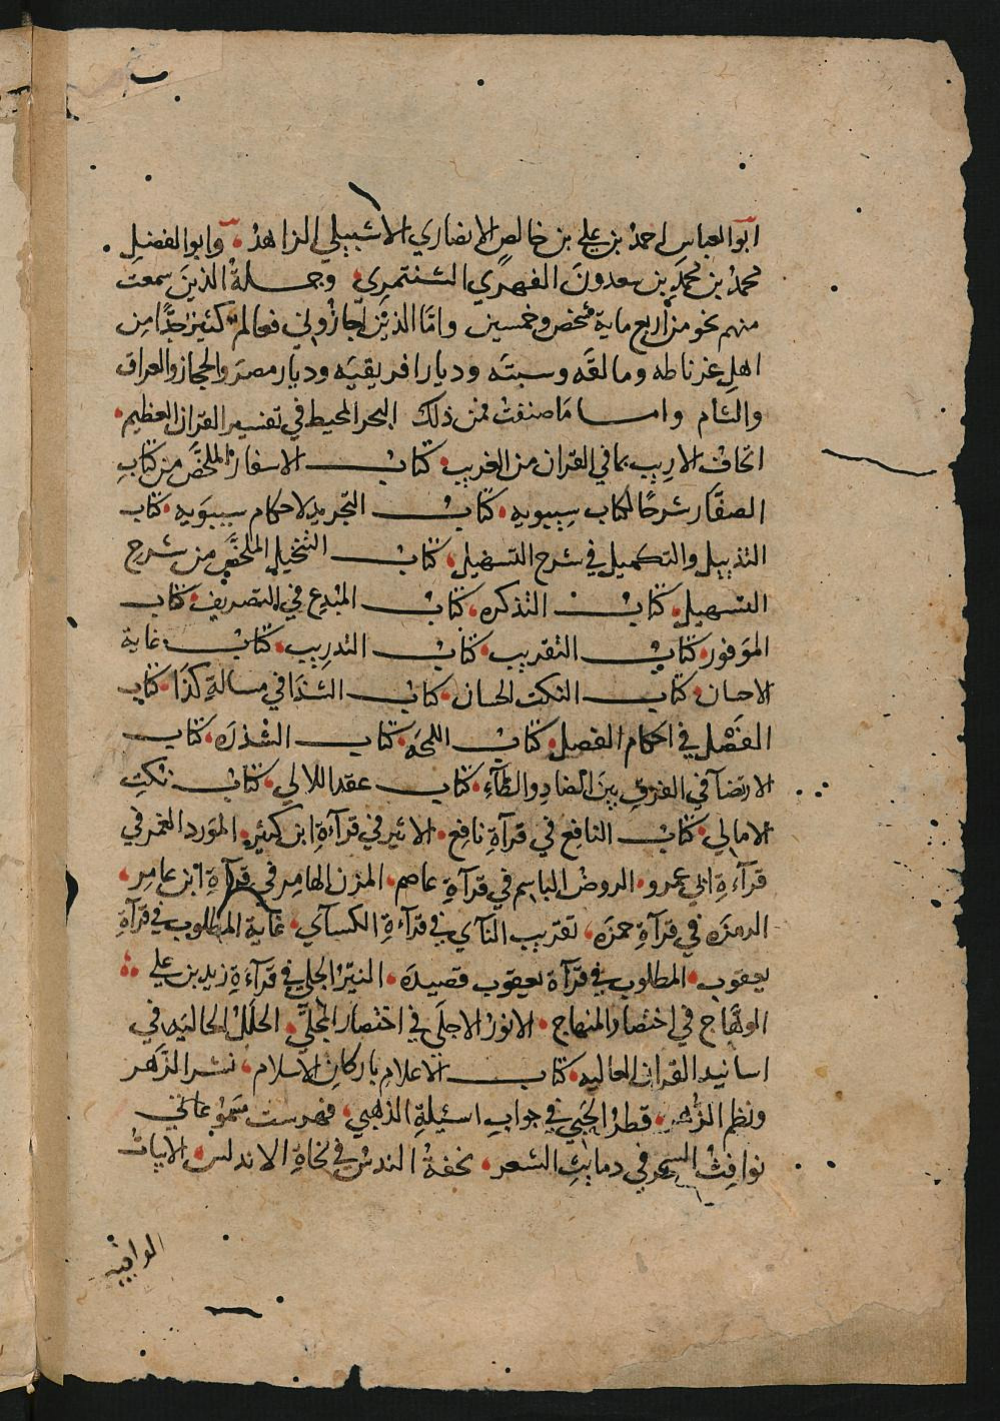 ابو العباس احمد بن علي بن خالص الانصاري الاشبيلي الزاهد وابو الفضل
محمد بن محمد بن سعدون الفهري الشنتمري وجملة الذين سمعت
منهم نحو من اربع ماية شخص وخمسين واما الذين اجازوني فعالم كثير جدا من
اهل غرناطه ومالقه وسبته وديار افريقيه وديار مصر والحجاز والعراق
والشام واما ما صنفت فمن ذلك البحر المحيط في تفسير القران العظيم
اتحاف الاريب بما في القران من الغريب كتاب الاسفار الملخص من كتاب
الصفار شرحا لكتاب سيبويه كتاب التجريد لاحكام سيبويه كتاب
التذييل والتكميل في شرح التسهيل كتاب التنخيل الملخص من شرح
التسهيل كتاب التذكره كتاب المبدع في التصريف كتاب
الموفور كتاب التقريب كتاب التدريب كتاب غاية
الاحسان كتاب النكت الحسان كتاب الشذا في مسالة كذا كتاب
الفصل في احكام الفصل كتاب اللمحه كتاب الشذره كتاب
الارتضآ في الفرق بين الضاد والظآء كتاب عقد اللالي كتاب نكت
الامالي كتاب النافع في قرآة نافع الاثير في قرآءة ابن كثير المورد الغمر في
قرآءة ابي عمرو الروض الباسم في قرآة عاصم المزن الهامر في قرآة ابن عامر
الرمزه في قرآة حمزه تقريب النآي في قرآءة الكسآي غاية المطلوب في قرآة
يعقوب المطلوب في قرآة يعقوب قصيده النير الجلي في قرآءة زيد بن علي
الوهاج في اختصار المنهاج الانور الاجلى في اختصار المجلى الحلل الحاليه في
اسانيد القران العاليه كتاب الاعلام باركان الاسلام نثر الزهر
ونظم الزهر قطر الحبي في جواب اسئيلة الذهبي فهرست مسموعاتي
نوافث السحر في دمايث الشعر تحفة الندس في نحاة الاندلس الابيات
الوافيه